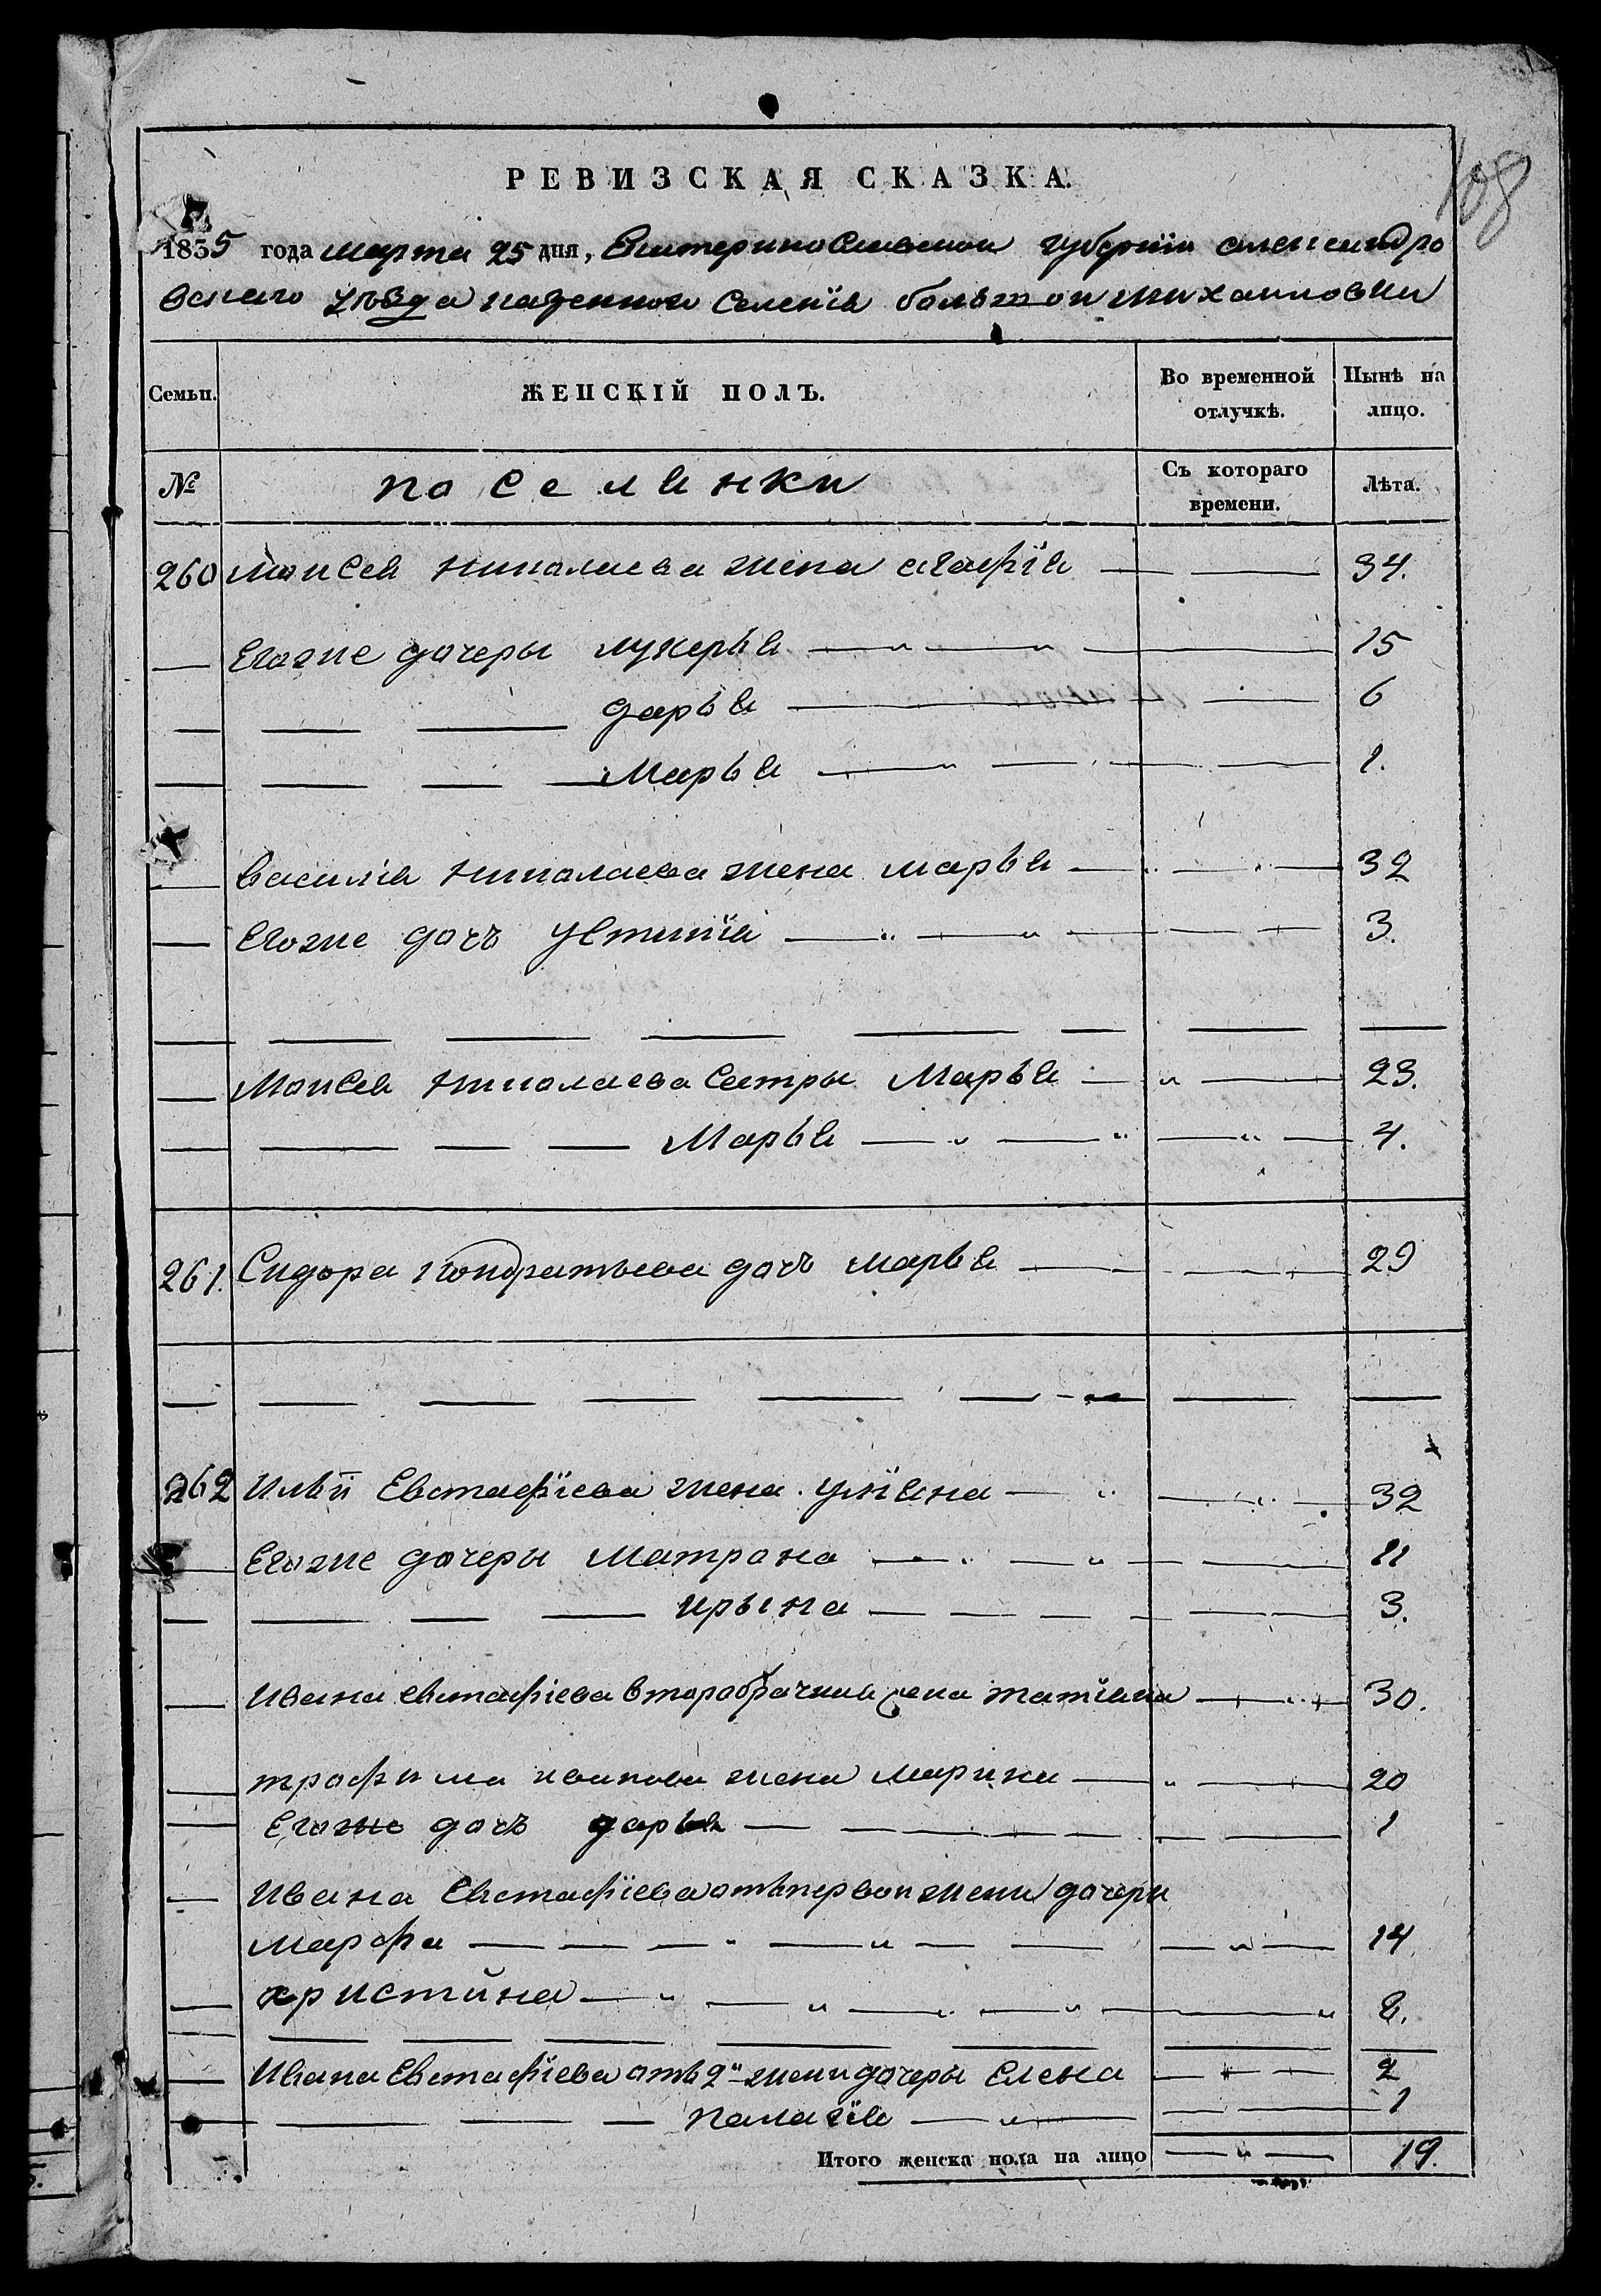 108
РЕВИЗСКАЯ СКАЗКА.
1835 года марта 25 дня, Екатеринославской губернїи александро
вскаго уѣзда казенной селенїя большой михайловки
Семьи. ЖЕНСКІЙ ПОЛЪ. Во временной отлучкѣ. Нынѣ на лицо.
№ поселянки Съ котораго времени. Лѣта.
260 Моисея николаева жена агафїя 34.
Егоже дочеры лукерья 15
дарья 6
Марья 1.
василїя николаева жена марья 32
Егоже дочъ устинїя 3.
Моисея николаева сестры Марья 23.
Марья 4.
261. Сидора кондратьева дочъ марья 29
262 Ильи Евстафїева жена ульяна 32
Егоже дочеры матрона 11
ирына 3.
Ивана евстафіева второбрачная жена татїана 30.
трофима иванова жена марина 20
Егоже дочъ дарья 1
Ивана Евстафїева отъ первой жени дочери
марфа 14
христина 8.
Ивана Евстафїева отъ 2й жени дочеры Елена 2
палагїя 1
Итого женска пола на лицо 19.